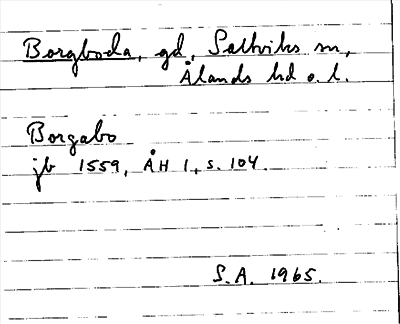 Borgboda, gd, Saltviks sn,
Ålands hd o. l.
Borgabo
jb 1559, ÅH 1, s. 104.
S.A. 1965.